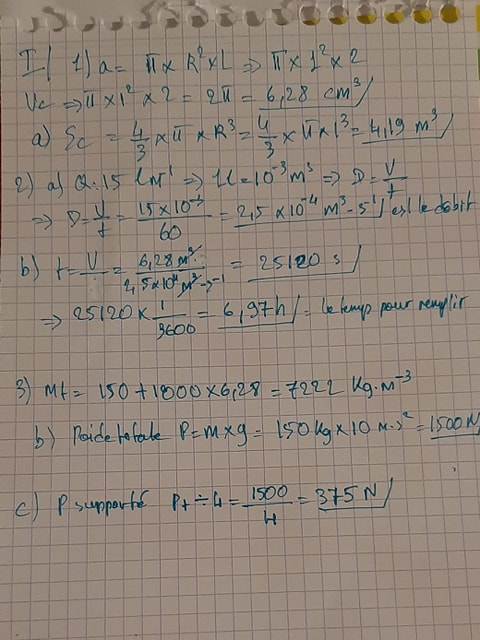 I/ 1) a= π × R² × L ⇒ π × 1² × 2
Vc ⇒ π × 1² × 2 = 2π = 6,28 cm³
a) Sc = 4/3 × π × R³ = 4/3 × π × 1³ = 4,19 m³
2) a) Q: 15 LM⁻¹ ⇒ 1L = 10⁻³ m³ ⇒ D = V/t
⇒ D = V/t = 15 × 10⁻³/60 = 2,5 × 10⁻⁴ m³-s⁻¹ est le débit
b) t = V/ = 6,28 m³/2,5×10⁻⁴ m³-s⁻¹ = 25120 s
⇒ 25120 × 1/3600 = 6,97 h = le temp pour remplir
3) Mt = 150 + 1000 × 6,28 = 7222 Kg.m⁻³
b) Poide totale P = m × g = 150 Kg × 10 m.s² = 1500 N
c) P supporté Pt ÷ 4 = 1500/4 = 375 N